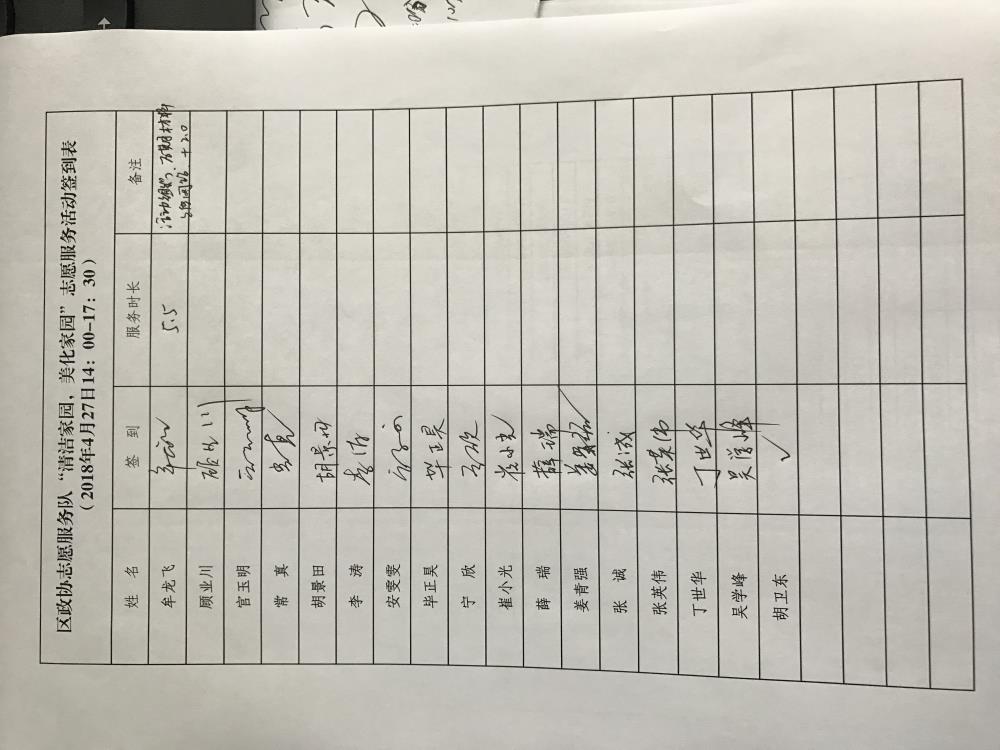 区政协志愿服务队“清洁家园，美化家园”志愿服务活动签到表
（2018年4月27日14：00-17：30）
姓 名 签 到 服务时长 备注
牟龙飞 5.5 +2.0
顾业川
官玉明
常 真
胡景田 胡景田
李 涛 李涛
安雯雯
毕正昊 毕正昊
宁 欣 宁欣
崔小光 崔小光
薛 瑞 薛瑞
姜青强
张 诚 张诚
张英伟 张英伟
丁世华 丁世华
吴学峰 吴学峰
胡卫东 ✓